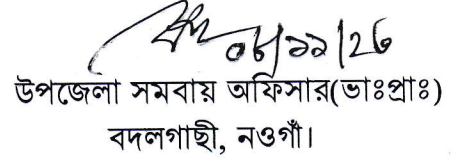 ০৮/১১/২৬
উপজেলা সমবায় অফিসার(ভাঃপ্রাঃ)
বদলগাছী, নওগাঁ।